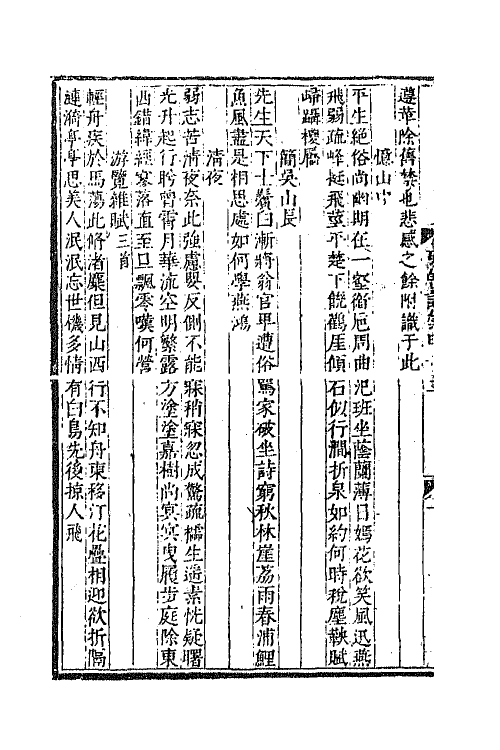 遵華除舊禁也悲感之餘附識于此
憶山中
平生絕俗尚幽期在一壑銜巵周曲汜班坐蔭蘭薄日嫣花欲笑風迅燕
飛弱疏峰挺飛莖平楚下饑鸛厓傾石似行澗折泉如約何時稅塵鞅賦
歸躡樱屩
簡吳山長
先生天下士鬢白漸將翁官平遭俗罵家破坐詩窮秋林崖荔雨春浦鯉
魚風盡是相思處如何學燕鴻
清夜
弱志苦清夜奈此強慮嬰反側不能寐稍寐忽成驚疏櫺生遥素恍疑曙
光升起行盻曾霄月華流空明繁露方塗塗嘉樹尚冥冥曳履步庭除東
西錯緯經寒落直至旦飄零嘆何營
游覽雜賦三首
輕舟疾於馬蕩此脩渚麋但見山西行不知舟東移汀花疊相迎欲折隔
漣漪亭亭思美人泯泯忘世機多情有白鳥先後掠人飛